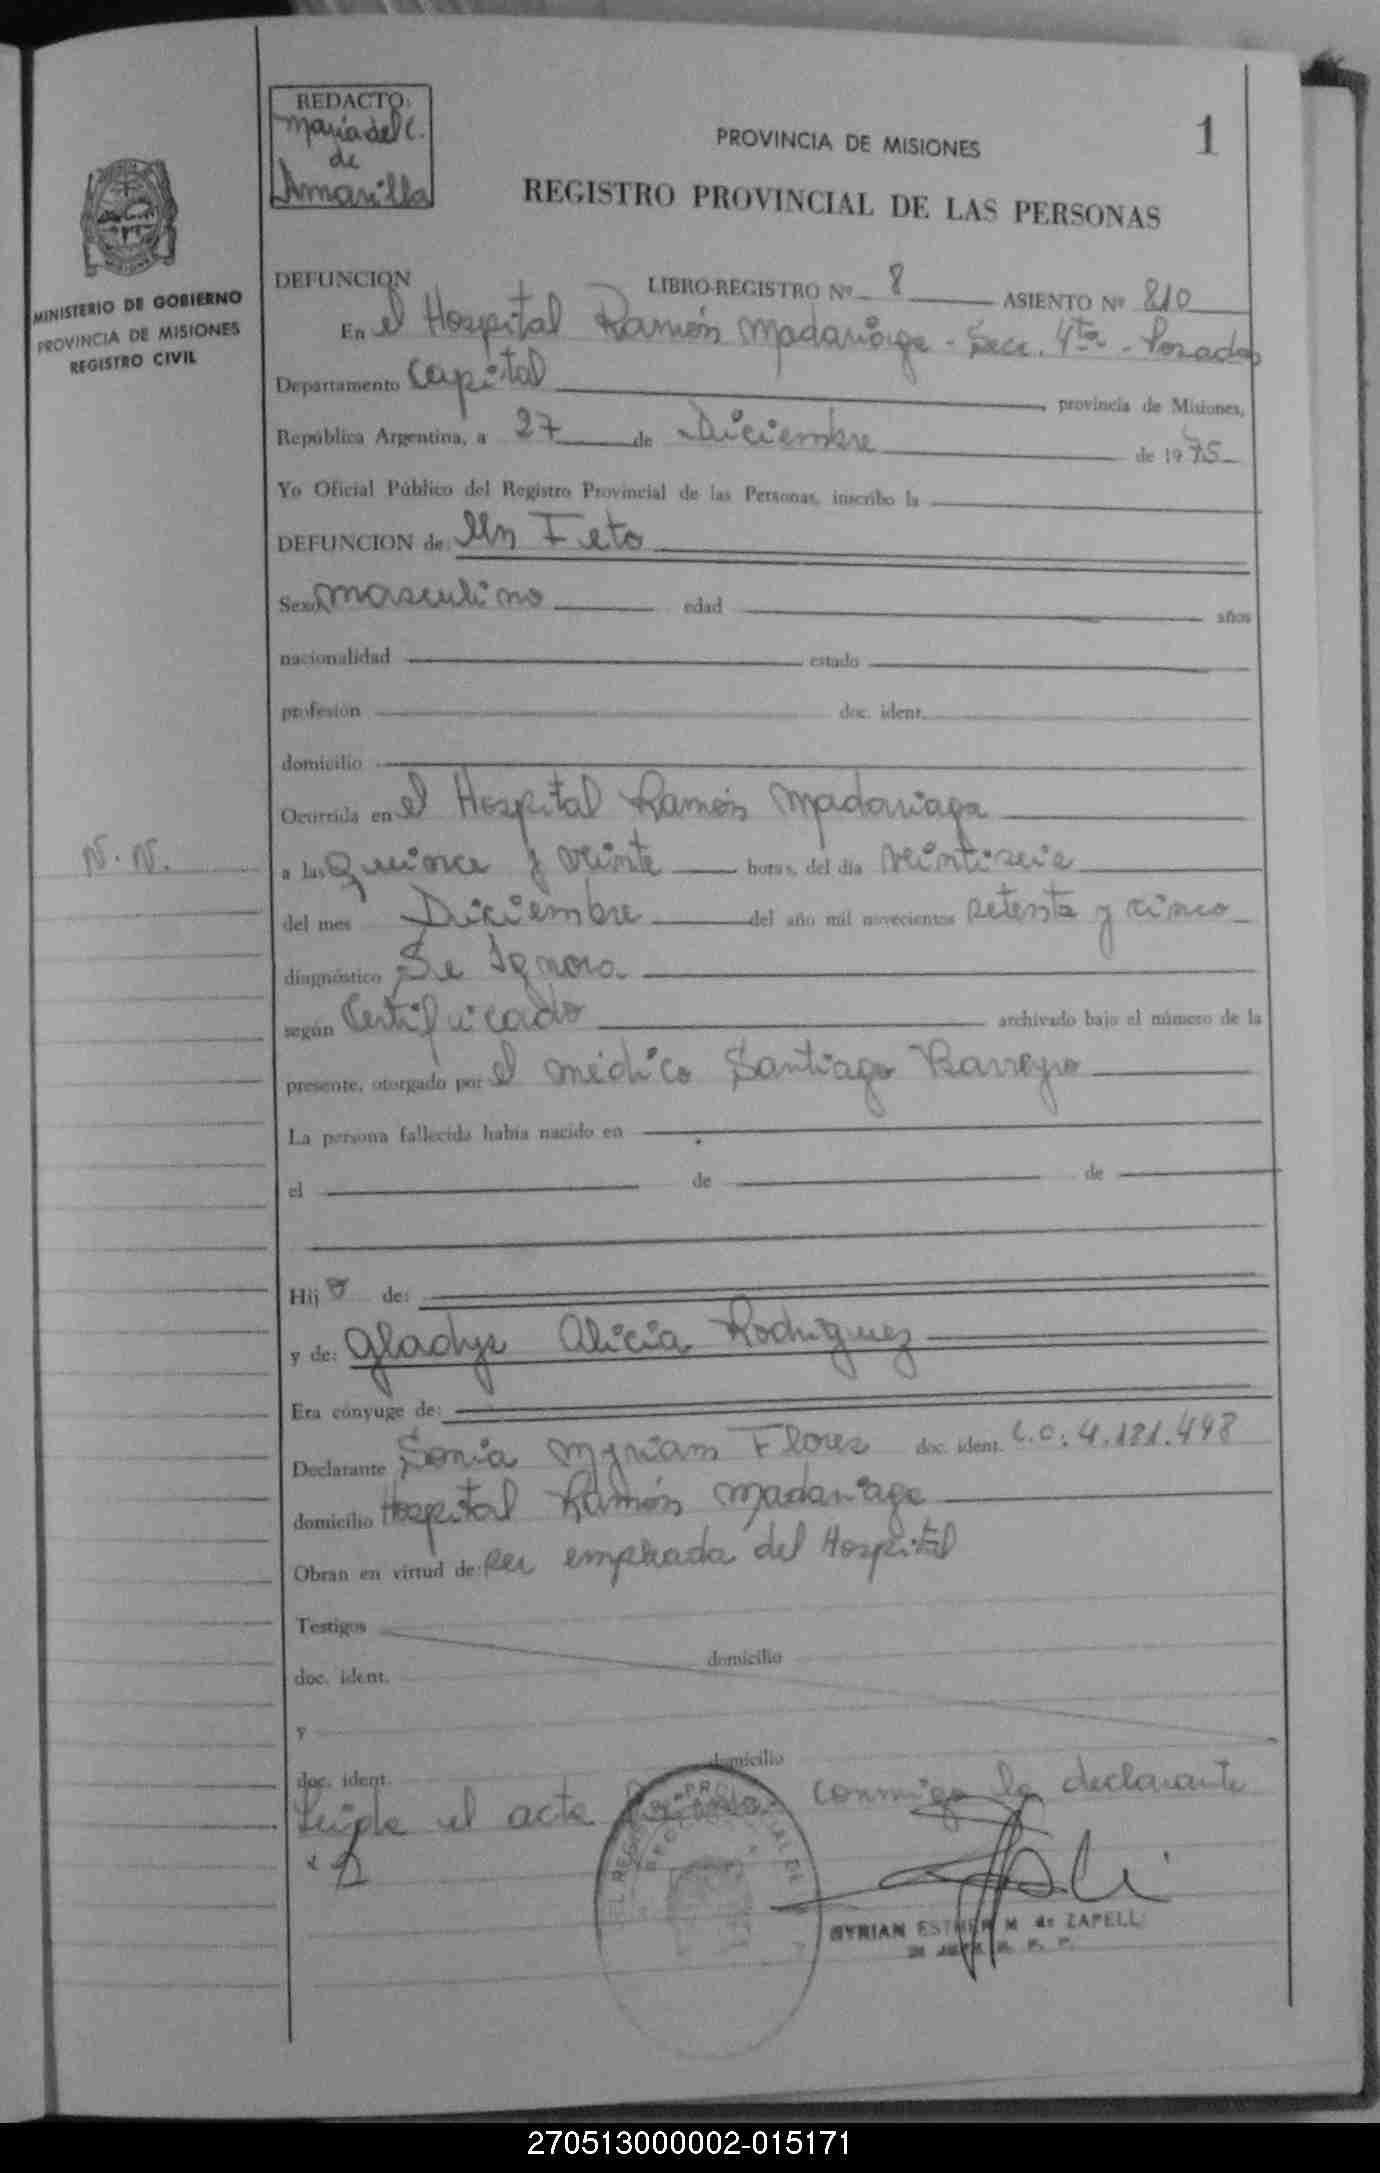 REDACTO:
María del C.
de
Amarilla
PROVINCIA DE MISIONES
1
REGISTRO PROVINCIAL DE LAS PERSONAS
MINISTERIO DE GOBIERNO
PROVINCIA DE MISIONES
REGISTRO CIVIL
DEFUNCION LIBRO-REGISTRO Nº 8 ASIENTO Nº 810
En el Hospital Ramón Madariaga - Secc. 4ta - Posadas
Departamento Capital provincia de Misiones,
República Argentina, a 27 de Diciembre de 1975
Yo Oficial Público del Registro Provincial de las Personas, inscribo la
DEFUNCION de: Un Feto
Sexo masculino edad años
nacionalidad estado
profesión doc. ident.
domicilio
Ocurrida en el Hospital Ramón Madariaga
N. N.
a las quince y veinte horas, del día veintiseis
del mes Diciembre del año mil novecientos setenta y cinco
diagnóstico Se Ignora
según Certificado archivado bajo el número de la
presente, otorgado por el médico Santiago Barreyro
La persona fallecida había nacido en
el de de
Hijo de:
y de: Gladys Alicia Rodriguez
Era cónyuge de:
Declarante Sonia Myriam Flores doc. ident. L.C. 4.181.448
domicilio Hospital Ramón Madariaga
Obran en virtud de: ser empleada del Hospital
Testigos
doc. ident. domicilio
y
doc. ident. domicilio
Leida el acta conmigo la declarante
MYRIAN ESTHER M de ZAPELLI
270513000002-015171